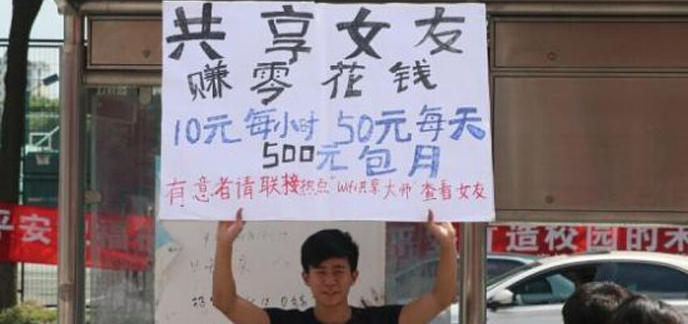 共享女友
赚零花钱
10元每小时 50元每天
500元包月
有意者请联接热点"Wifi共享大师 查看女友
平安
打造校园的